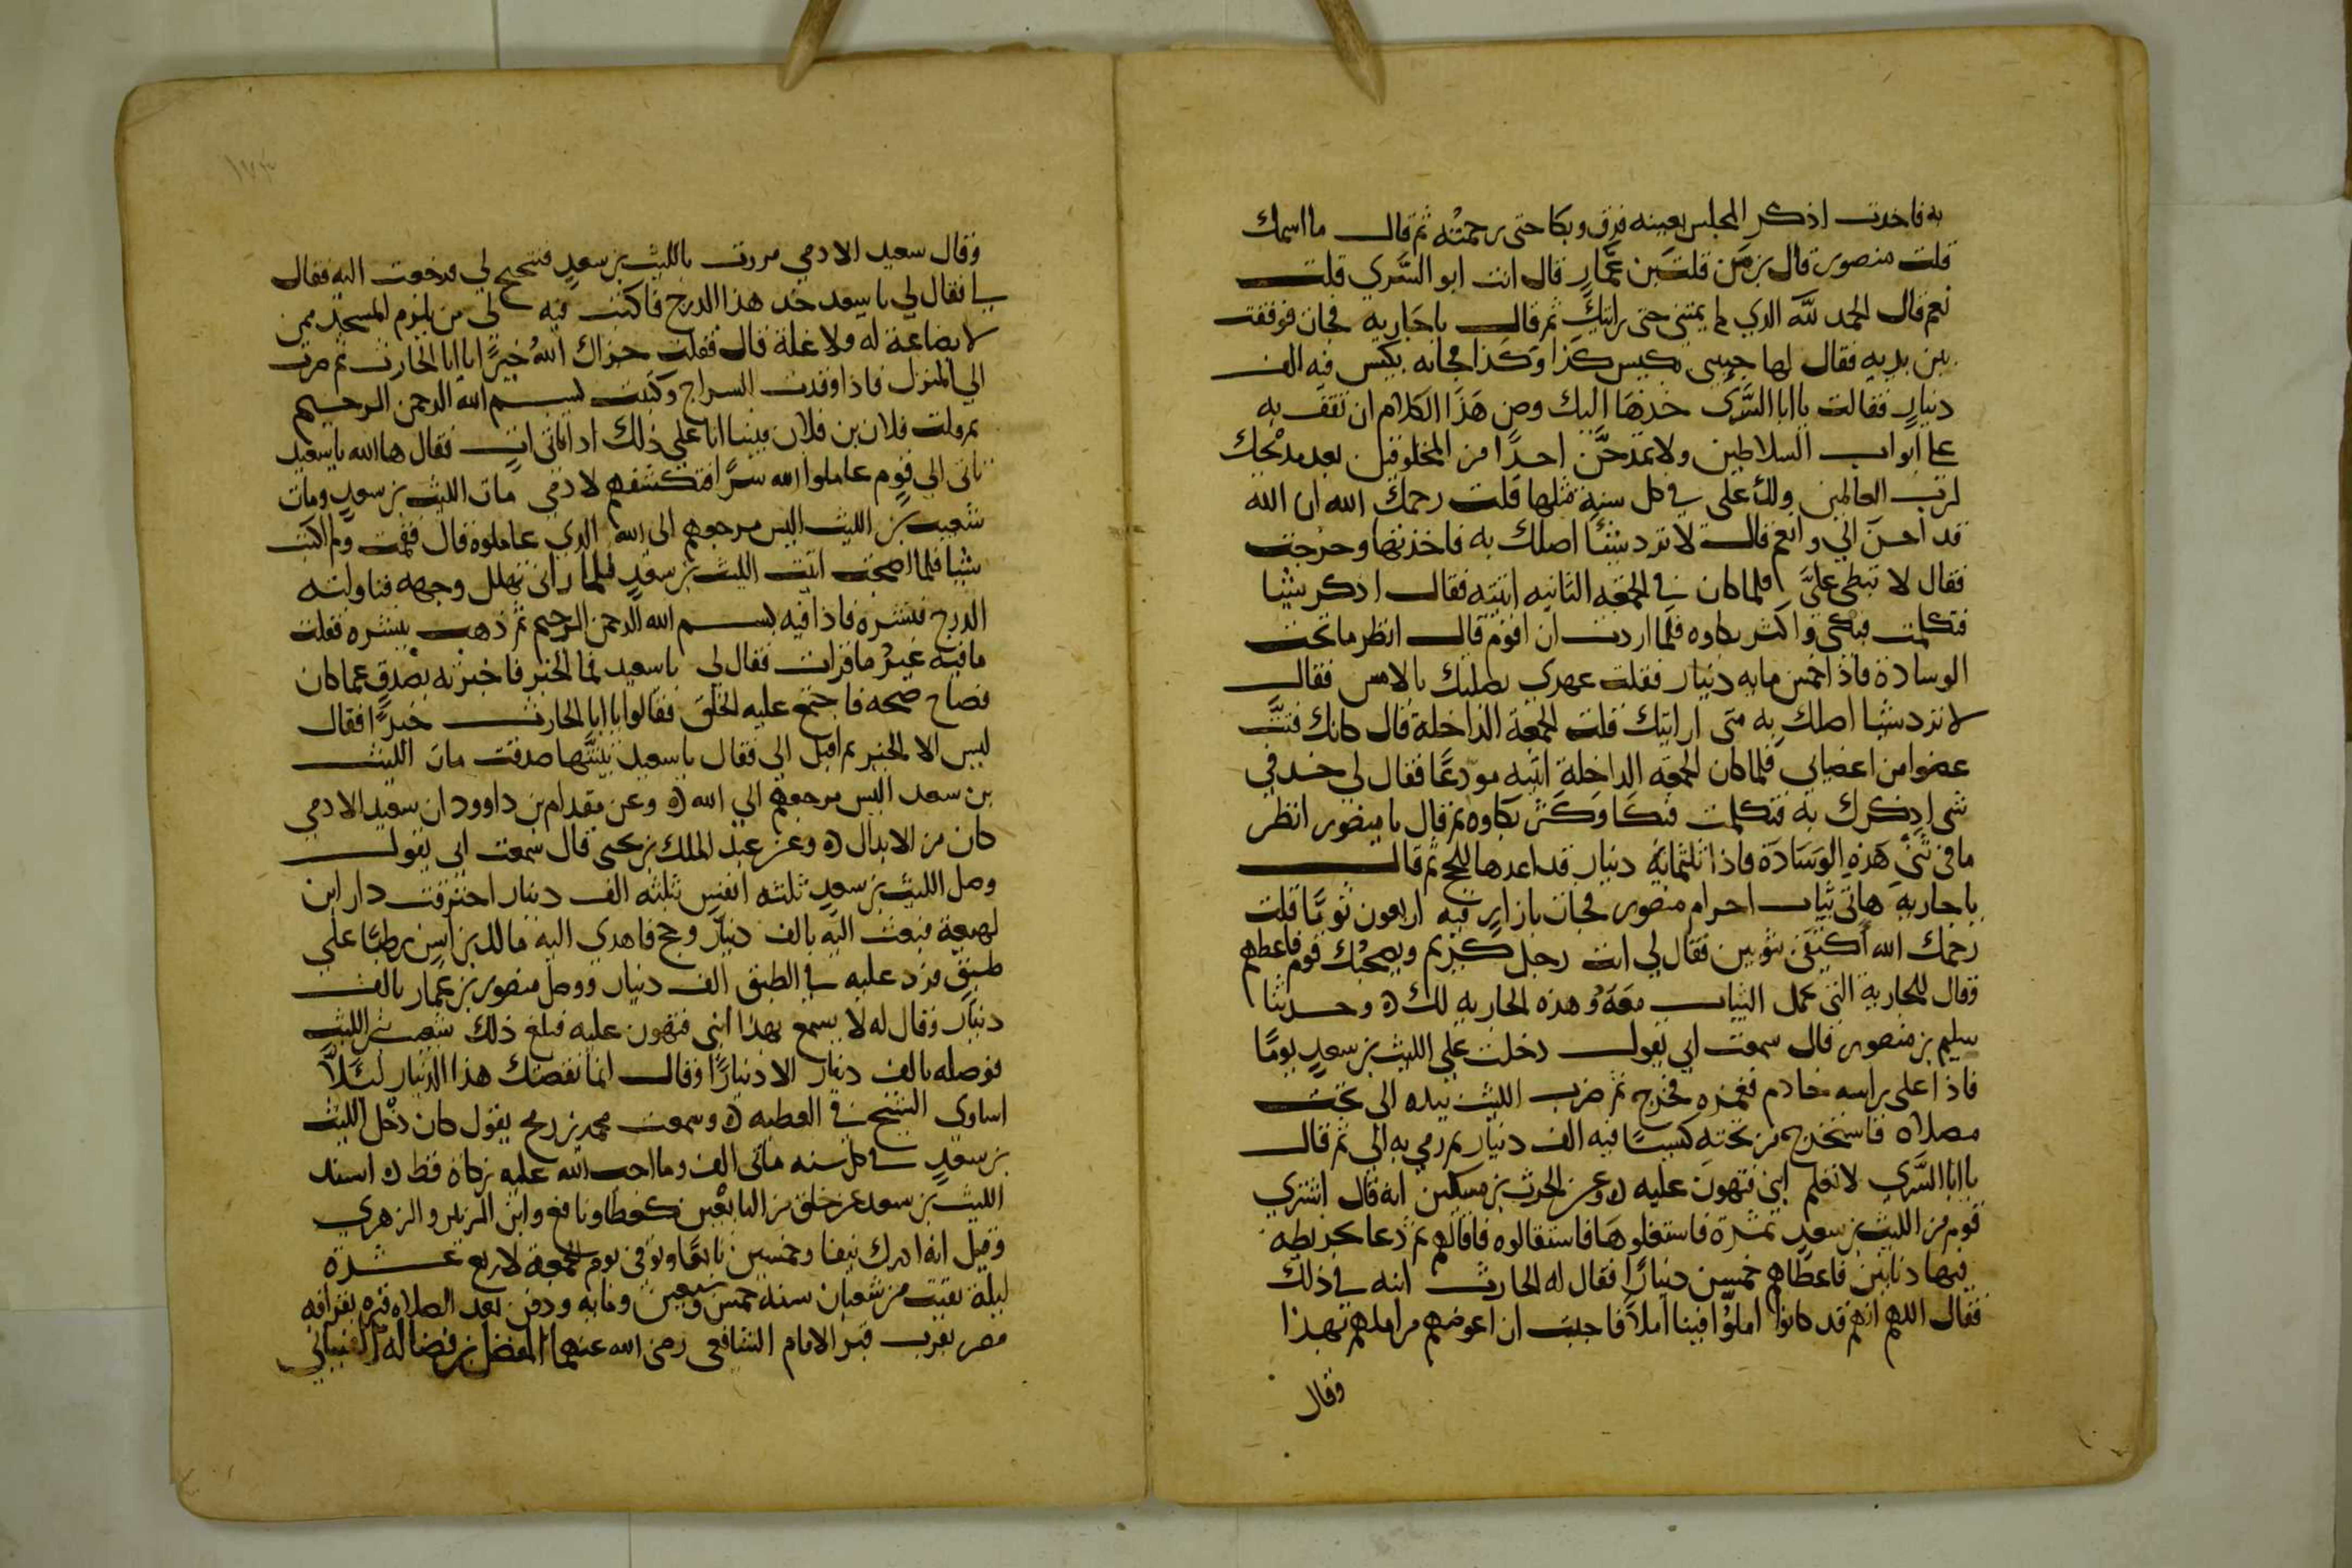 به فاخدت اذكر المجلس بعينه فرق وبكا حتى رحمته ثم قال ما اسمك
قلت منصور قال بن من قلت بن عمار قال انت ابو السري قلت
نعم قال الحمد لله الدي لم يمتني حتى رايتك ثم قال يا جاريه فجات فوقفت
بين يديه فقال لها جيى بكيس كذا وكذا فجاته بكيس فيه الف
دينار فقالت يا ابا السرى خذها اليك وصن هذا الكلام ان تقف به
على ابواب السلاطين ولا تمدحن احدا من المخلوقين بعد مدحك
لرب العالمين ولك على في كل سنة مثلها قلت رحمك الله ان الله
قد احسن الي وانعم قال لا ترد شيئا اصلك به فاخذتها وخرجت
فقال لا تبطى علي فلما كان في الجمعه الثانيه اتيته فقال اذكر شيئا
فتكلمت فبكى وكثر بكاوه فلما اردت ان اقوم قال انظر ما تحت
الوسادة فاذا خمس مايه دينار فقلت عهدي بصلتك بالامس فقال
لا ترد شيا اصلك به متى اراتيك قلت الجمعة الداخلة قال كانك فتت
عضوا من اعضايي فلما كان الجمعة الداخلة اتيته مودعا فقال لي خذ في
شى اذكرك به فتكلمت فبكا وكثر بكاوه ثم قال يا منصور انظر
ما في ثني هذه الوسادة فاذا ثلثمائة دينار قد اعدها للحج ثم قال
يا جارية هاتى ثياب احرام منصور فجات بازار فيه اربعون ثوبا قلت
رحمك الله اكتفى بثوبين فقال لي انت رجل كريم ويصحبك قوم فاعطهم
وقال للجارية التى تحمل الثياب معه وهذه الجاريه لك ه وحدثنا
سليم بن منصور قال سمعت ابي يقول دخلت على الليث بن سعد يوما
فاذا على راسه خادم فغمزه فخرج ثم ضرب الليث بيده الى تحت
مصلاه فاستخرج من تحته كيسا فيه الف دينار ثم رمي به الي ثم قال
يا ابا السري لا تعلم ابني فتهون عليه ه وعن الحرث بن مسكين انه قال اشتري
قوم من الليث بن سعد ثمرة فاستغلوها فاستقالوه فاقالهم ثم دعا بخريطه
فيها دنانير فاعطاهم خمسين دينارا فقال له الحارث ابنه في ذلك
فقال اللهم انهم قد كانوا املوا فينا املا فاحببت ان اعوضهم من املهم بهذا
وقال
وقال سعيد الادمي مررت بالليث بن سعد فتنحنح لي فرجعت اليه فقال
لي يا سعيد خذ هذا الدرج فاكتب فيه لى من يلزم المسجد ممن
لا بضاعة له ولا غلة قال فقلت جزاك الله خيرا يا ابا الحارث ثم صرت
الى المنزل فاذا اوقدت السراج وكتبت بسم الله الرحمن الرحيم
ثم قلت فلان بن فلان فبينا انا على ذلك اذ اتانى ات فقال ها الله يا سعيد
تاتى الى قوم عاملوا الله سرا فتكشفهم لادمى مات الليث بن سعد ومات
شعيب بن الليث اليس مرجعهم الى الله الدي عاملوه قال فقمت ولم اكتب
شيا فلما اصبحت اتيت الليث بن سعد فلما راني تهلل وجهه فناولته
الدرج فنشره فاذا فيه بسم الله الرحمن الرحيم ثم ذهب ينشره فقلت
ما فيه غير ما قرات فقال لي يا سعيد فما الخبر فاخبرته بصدق عما كان
فصاح صيحه فاجتمع عليه الخلق فقالوا يا ابا الحارث خيرا فقال
ليس الا الخير ثم اقبل الي فقال يا سعيد تبينتها صدقت مات الليث
بن سعد اليس مرجعهم الي الله ه وعن مقدام بن داوود ان سعيد الادمي
كان من الابدال ه وعن عبد الملك بن يحيى قال سمعت ابي يقول
وصل الليث بن سعد ثلثه انفس ثلثه الف دينار احترقت دار ابن
لهيعة فبعث اليه بالف دينار وحج فاهدي اليه مالك بن انس رطبا على
طبق فرد عليه في الطبق الف دينار ووصل منصور بن عمار بالف
دينار وقال له لا يسمع بهذا ابني فتهون عليه فبلغ ذلك شعيب بن الليث
فوصله بالف دينار الا دينارا وقال انما نقصتك هذا الدينار لئلا
اساوى الشيخ في العطيه ه وسمعت محمد بن رمح يقول كان دخل الليث
بن سعد في كل سنه مائتى الف وما اوجب الله عليه زكاة قط ه اسند
الليث بن سعد عن خلق من التابعين كعطا ونافع وابن الزبير والزهري
وقيل انه ادرك نيفا وخمسين تابعا وتوفى يوم الجمعة لاربع عشرة
ليلة بقيت من شعبان سنه خمس وسبعين ومايه ودفن بعد الصلاه قبره بقرافه
مصر بقرب قبر الامام الشافعى رضى الله عنهما المفضل بن فضاله القتباني